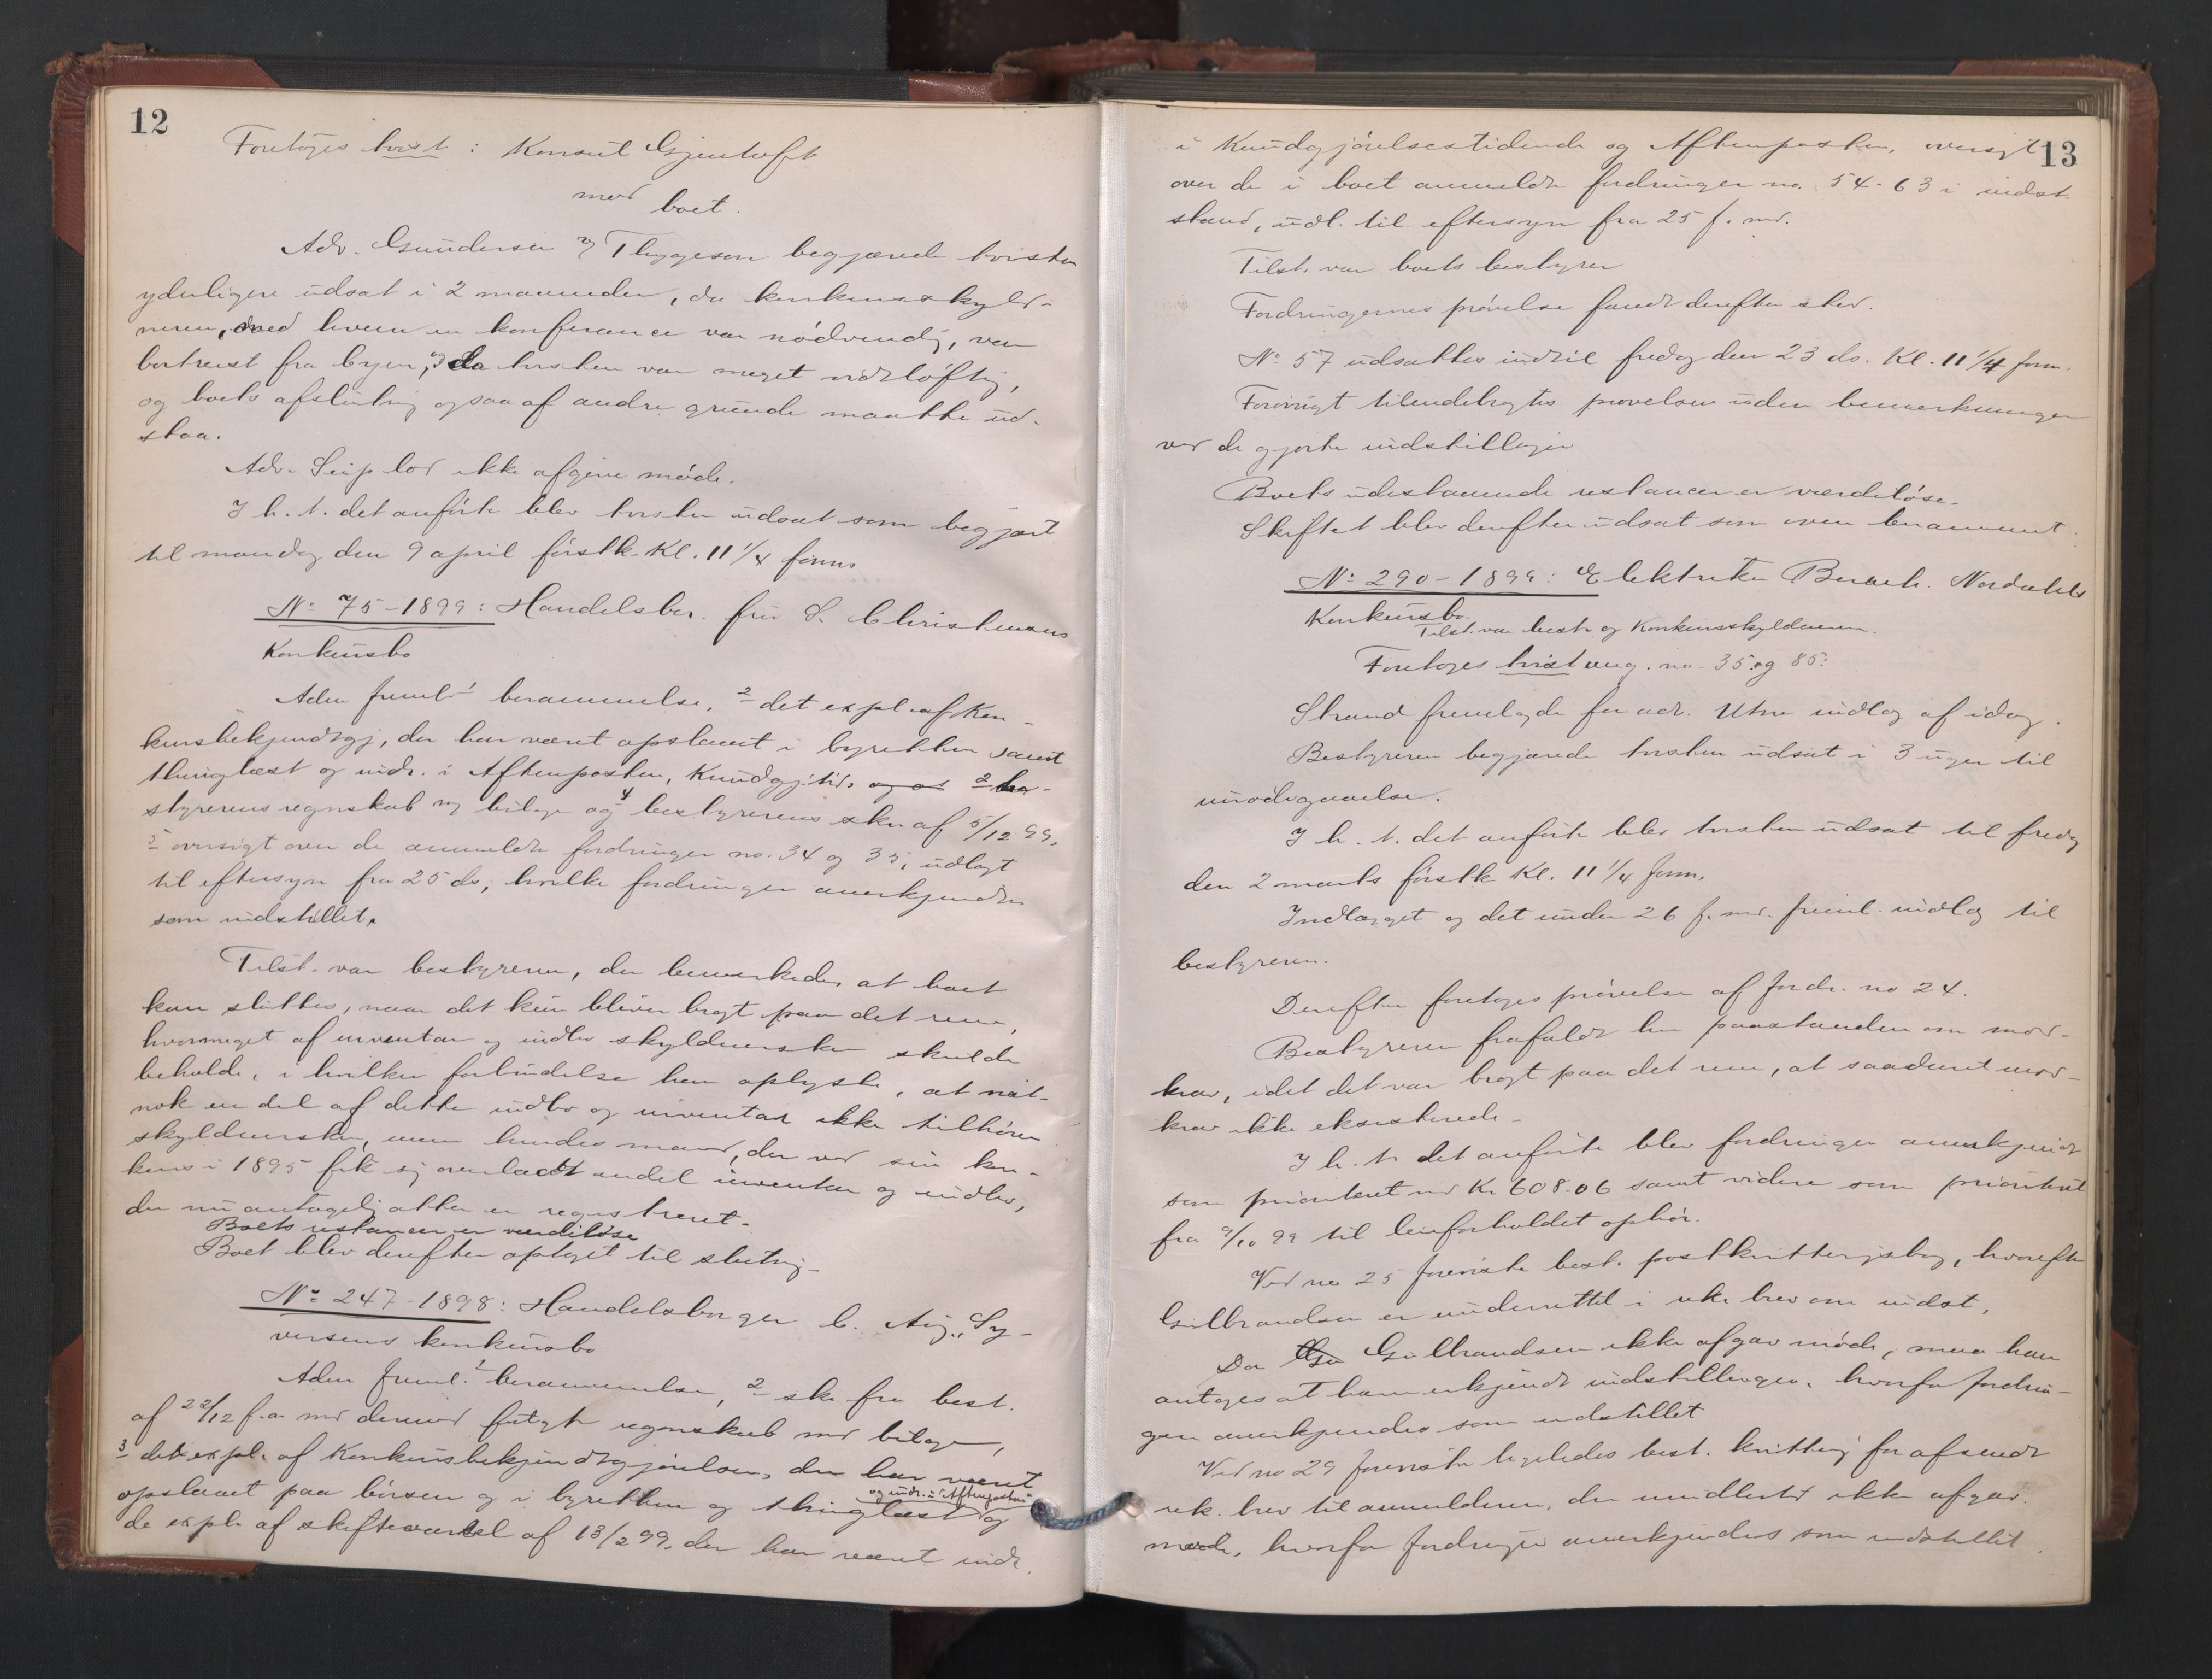 12
Foretoges tvist: Konsul Gjentoft
mod
boet.
Adv. Gundersen & Thygeson begjærede tvisten
yderligere udsat i 2 maaneder, da konkursskyld-
neren, med hvem en konferance var nödvendig, var
bortreist fra byen, da tvisten var meget vidtløftig,
og boets afslutning ogsaa af andre grunde maatte ud-
staa.
Adv. Seip lod ikke afgive möde.
I h. t. det anførte blev tvisten udsat som begjært
til mandag den 9 april förstk. Kl. 11 1/4 form.
No 75-1899: Handelsber. fru S. Christensens
Konkursbo
Aden freml. 1 berammelse, 2 det expl. af Kon-
kursbekjendtgj, der har været opslaaet i byretten samt
thinglæst og indr. i Aftenposten, Kundgj. tid. 3 be-
styrerens regnskab m bilage og 4 bestyrerens skr. af 5/12 99,
5 oversigt over de anmeldte fordringer no. 34 og 35, udlagt
til eftersyn fra 25 ds, hvilke fordringer anerkjendtes
som indstillet.
Tilst. var bestyreren, der bemerkede, at boet
kan sluttes, naar det kun bliver bragt paa det rene,
hvormeget af inventar og indbo skyldnersken skulde
beholde, i hvilken forbindelse han oplyste, at nat-
nok en del af dette indbo og inventar ikke tilhörer
skyldnersken, men hendes mand, der ved sin kon-
kurs i 1895 fik sig overladt endel inventar og indbo,
der nu antagelig atter er registreret.
Boets restancer er værdiløse
Boet blev derefter optaget til slutning.
No 247-1898: Handelsborger C. Aug. Sy-
versens konkursbo
Aden freml. 1 berammelse, 2 skr. fra best.
af 22/12 f.a. med dermed fulgt regnskab med bilage,
3 det expl. af Konkursbekjendtgjörelsen, der har været
og indr. i "Aftenposten"
opslaaet paa börsen og i byretten og thinglæst og
de expl. af skiftevarsel af 13/2 99, der har været indr.
13
i Kundgjörelsestidende og Aftenposten, oversigt
over de i boet anmeldte fordringer no. 54-63 i indst.
stand, udl. til eftersyn fra 25 f. md.
Tilst. var boets bestyrer
Fordringernes prövelse fandt derefter sted.
No 57 udsattes indtil fredag den 23 ds. Kl. 11 1/4 form.
Forövrigt tilendebragtes prøvelsen uden bemerkninger
ved de gjorte indstillinger
Boets udestaaende restancer er værdelöse.
Skiftet blev derefter udsat som oven berammet.
No 290-1899: Elektriker Bernh. Nordahls
Konkursbo.
Tilst. var best. og Konkursskyldneren.
Foretoges tvist ang. no. 35 og 85:
Strand fremlagde for adv. Utne indlæg af idag.
Bestyreren begjærede tvisten udsat i 3 uger til
imödegaaelse.
I h. t. det anførte blev tvisten udsat til fredag
den 2 marts förstk. Kl. 11 1/4 form.
Indlægget og det under 26 f. md. freml. indlæg til
bestyreren.
Derefter foretoges prövelse af fordr. no 24.
Bestyreren frafaldt her paastanden om mod-
krav, idet det var bragt paa det rene, at saadant mod-
krav ikke eksisterede.
I h. t. det anførte blev fordringen anerkjendt
som prioriteret med Kr 608.06 samt videre som prioriteret
fra 9/10 99 til leieforholdet ophör.
Ved no 25 foreviste best. postkvitteringsbog, hvorefter
Gulbrandsen er underrettet i rek. brev om indst.
Da Gulbrandsen ikke afgav möde, maa han
antages at ha anerkjendt indstillingen, hvorfor fordrin-
gen anerkjendes som indstillet
Ved no 29 foreviste ligeledes best. kvittering for afsendt
rek. brev til anmelderen, der imidlertid ikke afgav
møde, hvorfor fordringen anerkjendes som indstillet.